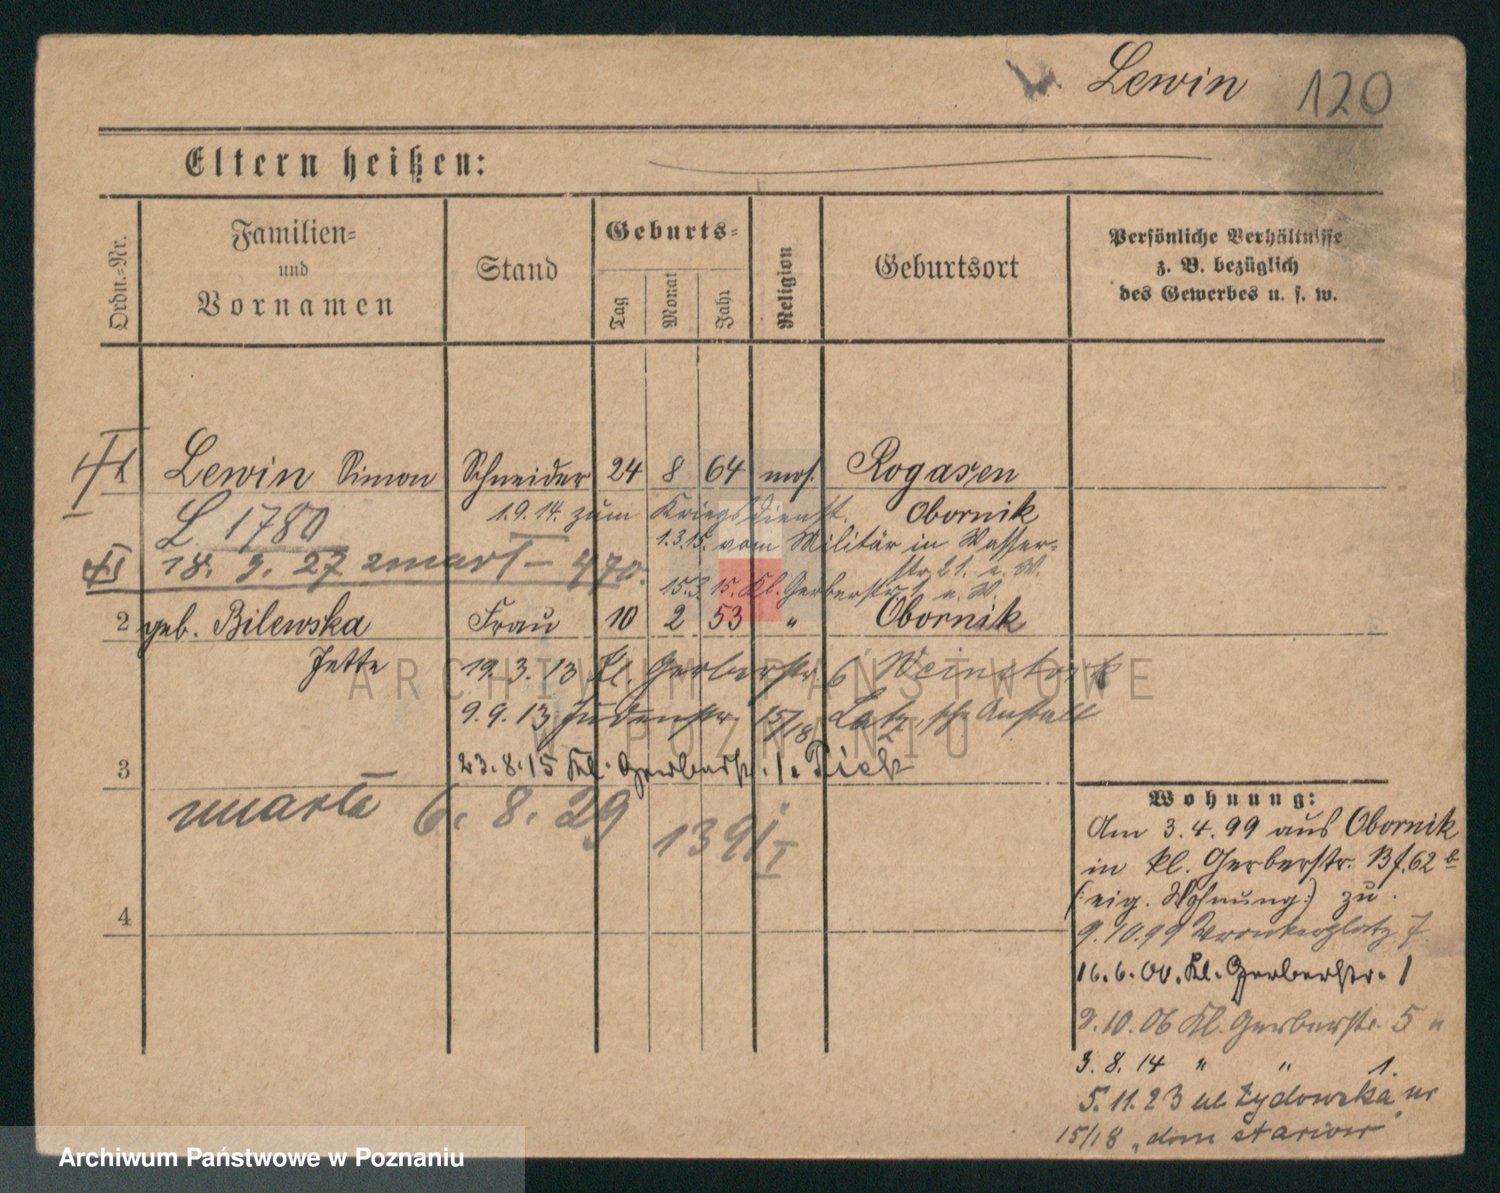 Lewin 120
Eltern heißen:
Ordn.-Nr.
Familien-
und
Vornamen
Stand
Geburts-
Tag
Monat
Jahr
Religion
Geburtsort
Persönliche Verhältnisse
z. B. bezüglich
des Gewerbes u. s. w.
Lewin Simon Schneider 24 8 64 mos. Rogasen
L 1780 1.9.14. zum Kriegsdienst. Obornik
1.3.15. vom Militär in Wasser-
str. 21. u. W.
18. 3. 27 zmarł - 470.
15.3.15. Kl. Gerberstr. 1 u. W.
2 geb. Bilewska Frau 10 2 53 " Obornik
Jette 19.3.13 Kl. Gerberstr. 6
9.9.13 Judenstr. 15/18 Latz'sche Anstalt
3 23.8.15 Kl. Gerberstr. 1. Pick
umarła 6. 8. 29 1391/I
4
Wohnung:
Am 3.4.99 aus Obornik
in kl. Gerberstr. Bf. 62 b
(: eig. Wohnung :) zu
9.10.99 Wronkerplatz 7.
16.6.00. Kl. Gerberstr. 1
2.10.06 Kl. Gerberstr. 5 "
3. 8. 14 " " 1.
5.11.23 ul Żydowska nr
15/18 „dom starców”
ARCHIWUM PAŃSTWOWE
W POZNANIU
Archiwum Państwowe w Poznaniu